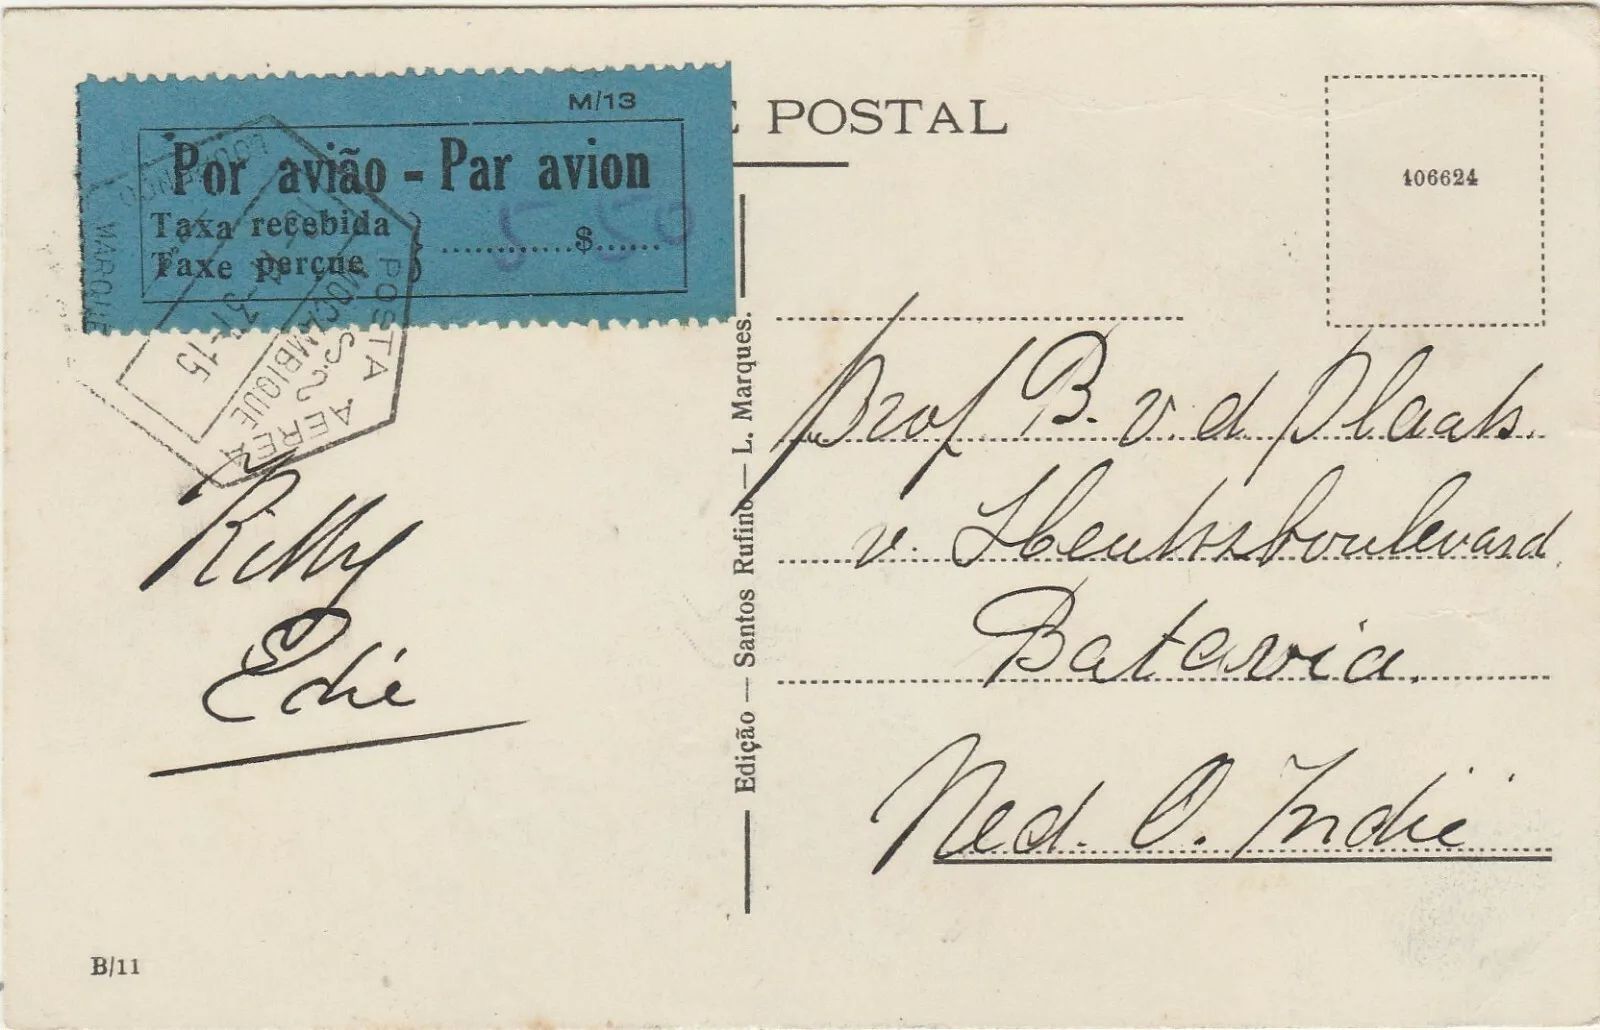 M/13
Por avião - Par avion
Taxa recebida
Taxe perçue
$
E POSTAL
106624
LOURENÇO MARQUES
POSTA AEREA
MOÇAMBIQUE
Kitty
Edie
Edição — Santos Rufino — L. Marques.
Prof B. v. d Plaats.
v. Heutszboulevard.
Batavia.
Ned. O. Indië
B/11